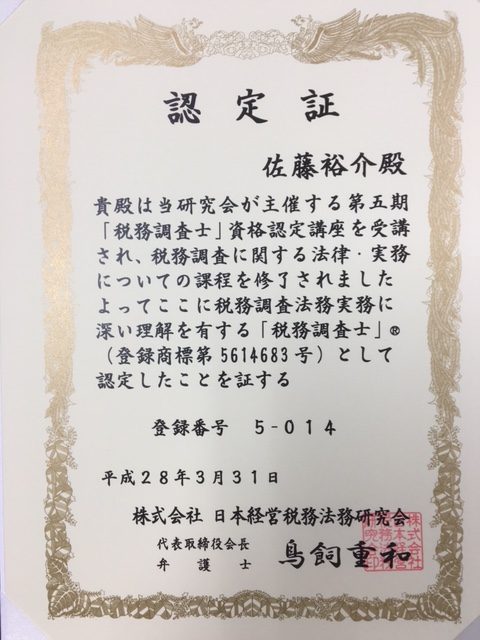 認定証
佐藤裕介殿
貴殿は当研究会が主催する第五期
「税務調査士」資格認定講座を受講
され、税務調査に関する法律・実務
についての課程を修了されました
よってここに税務調査法務実務に
深い理解を有する「税務調査士」®
（登録商標第5614683号）として
認定したことを証する
登録番号 5-014
平成28年3月31日
株式会社 日本経営税務法務研究会
代表取締役会長
弁護士 鳥飼重和